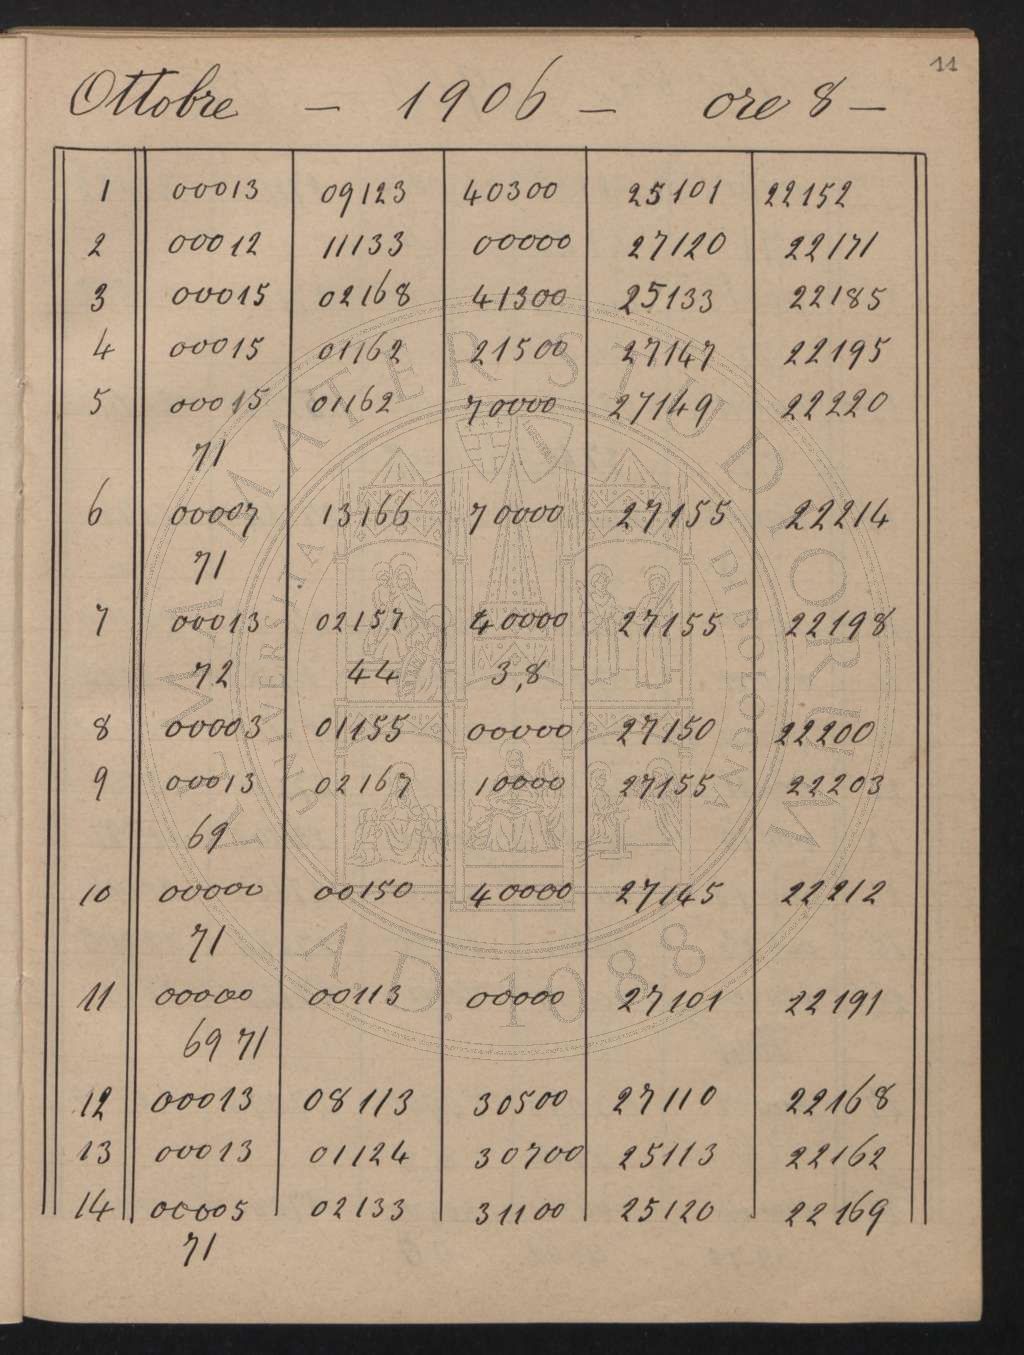 11
Ottobre - 1906 - ore 8 -
1 00013 09123 40300 25101 22152
2 00012 11133 00000 27120 22171
3 00015 02168 41300 25133 22185
4 00015 01162 21500 27147 22195
5 00015 01162 70000 27149 22220
71
6 00007 13166 70000 27155 22214
71
7 00013 02157 40000 27155 22198
72 44 3,8
8 00003 01155 00000 27150 22200
9 00013 02167 10000 27155 22203
69
10 00000 00150 40000 27145 22212
71
11 00000 00113 00000 27101 22191
69 71
12 00013 08113 30500 27110 22168
13 00013 01124 30700 25113 22162
14 00005 02133 31100 25120 22169
71
ALMA MATER STUDIORUM
UNIVERSITÀ DI BOLOGNA
A.D. 1088